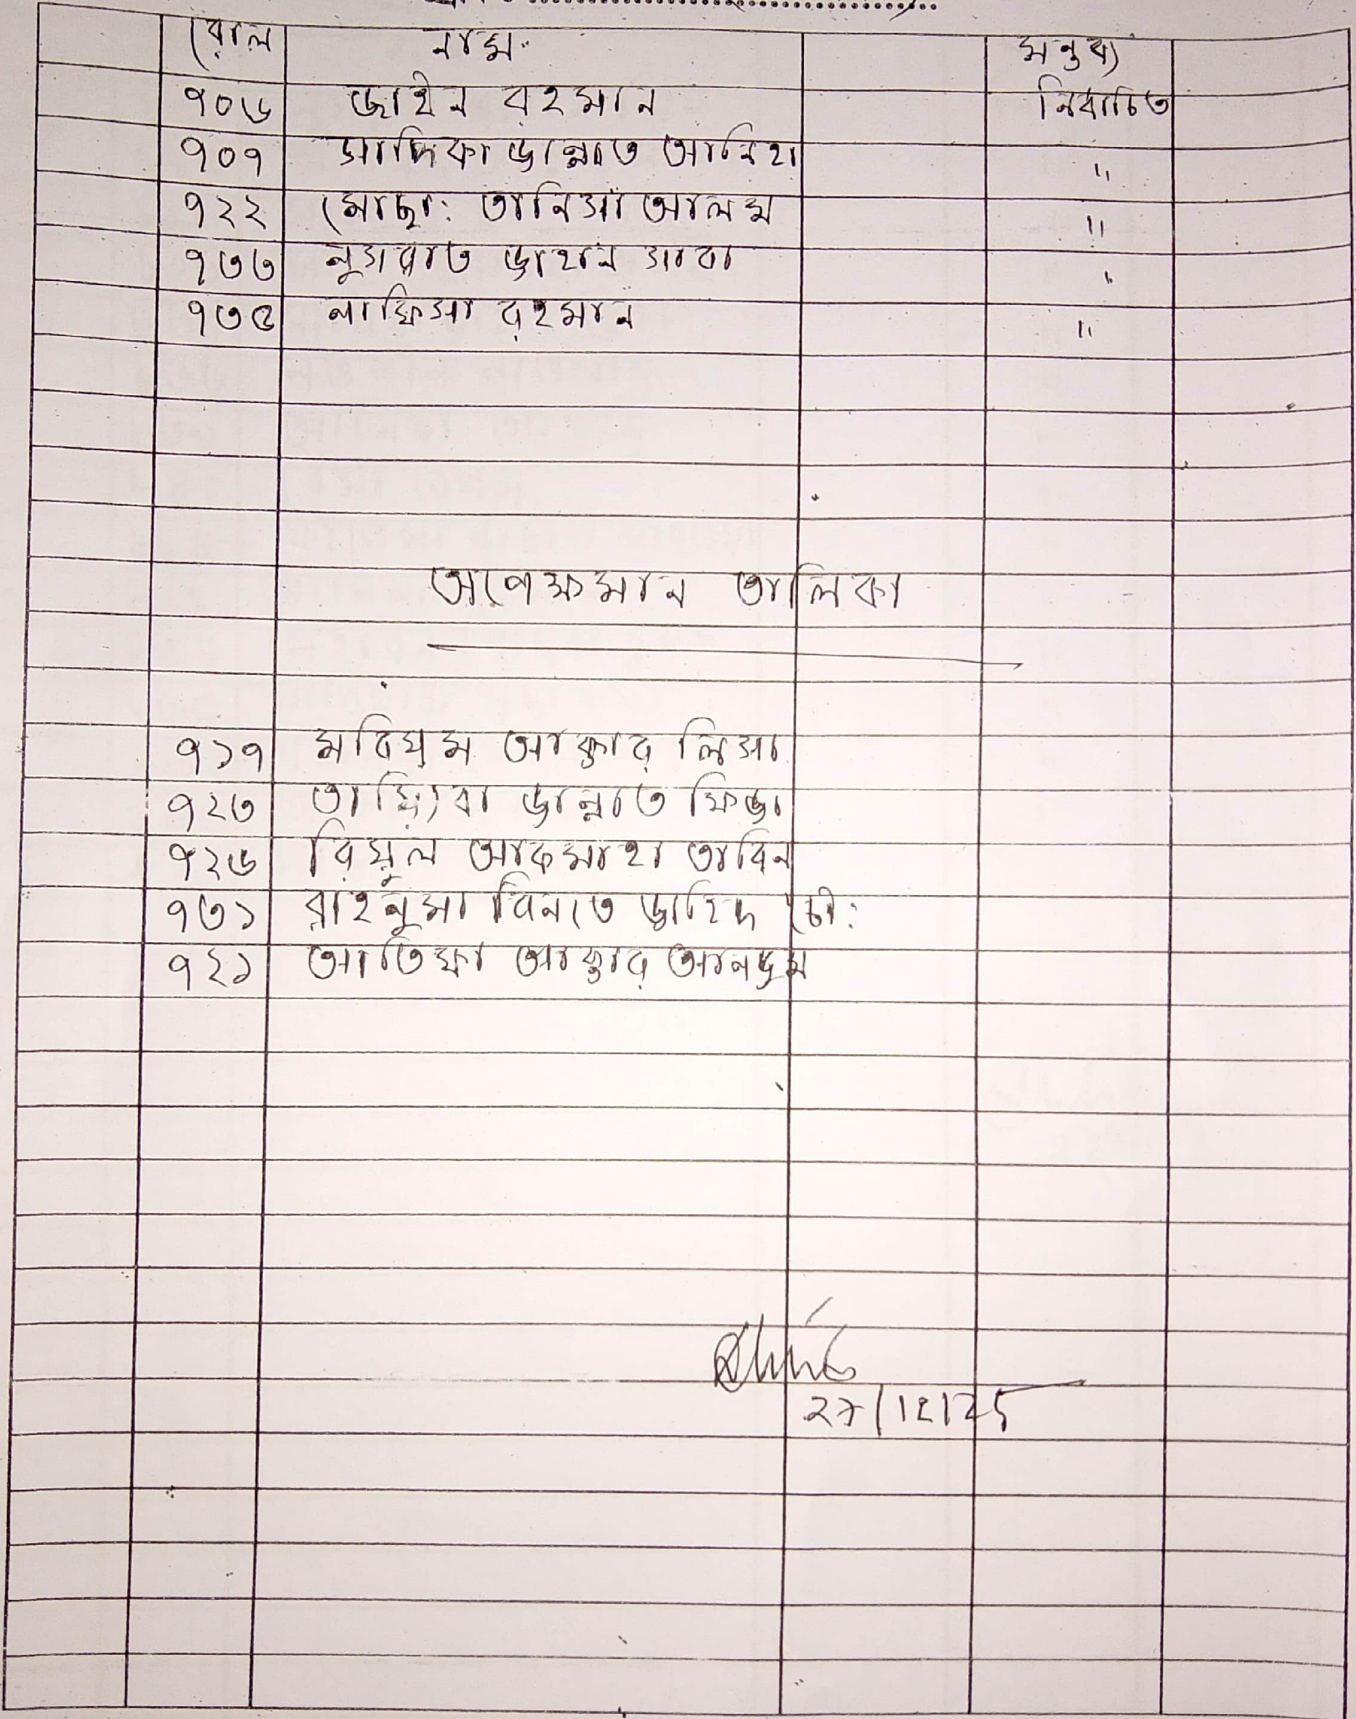 রোল নাম মন্তব্য
৭০৬ জাইন রহমান নির্বাচিত
৭০৭ সাদিকা জান্নাত আনিহা "
৭২২ মোছা: তানিসা আলম "
৭৩৩ নুসরাত জাহান সাবা "
৭৩৫ নাফিসা রহমান "
অপেক্ষমান তালিকা
৭১৭ মরিয়ম আক্তার লিসা
৭২৩ তায়্যিবা জান্নাত ফিজা
৭২৬ আকসাহা তাবিন
৭৩১ রাইনুমা বিনতে জাহিদ চৌ:
৭২১ আতিফা আক্তার আনজুম
27/12/25